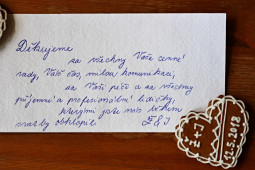 Děkujeme
za všechny Vaše cenné
rady, Váš čas, milou komunikaci,
za Vaši péči a za všechny
příjemné a profesionální lidičky,
kterými jste nás během
svatby obklopili. Z & J
Z+J
11.5.2018